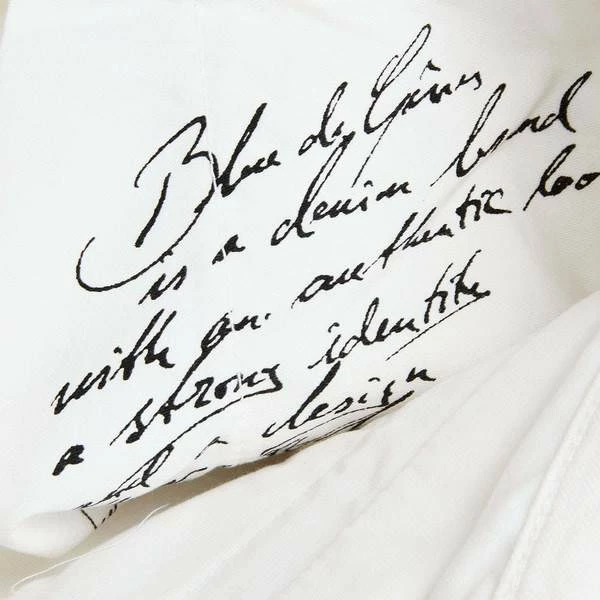 Blue de Gênes
is a denim brand
with an authentic loo
a strong identity
design